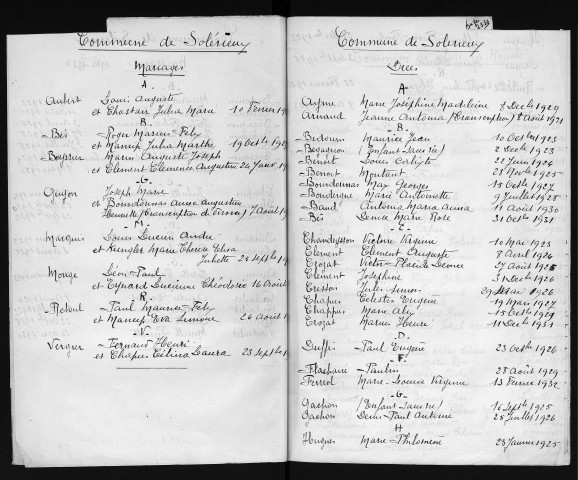 Commune de Solérieux
Mariages
A.
Aubert Louis Auguste
et Chastan Julia Marie 10 Février 19
B.
Bès Roger Marius Felix
et Marcep Julia Marthe 19 Octb 192
Beysser Marin Auguste Joseph
et Clément Clémence Augustine 24 Janv. 19
G.
Guyon Joseph Marie
et Bourdonnas Anna Augustine
Henriette 7 Août 19
M.
Marquis Louis Lucien André
et Kungler Marie Thérèse Elisa
Juliette 23 septb 19
Monge Léon Paul
et Eynard Lucienne Théodorie 16 Août
R.
Reboul Paul Maurice Felix
et Marcep Eva Simone 26 Août 1
V.
Verguer Fernand Henri
et Chapus Célina Laura 23 septb 1
Commune de Solérieux
Décès.
A.
Ayme Marie Joséphine Madeleine 8 Décb 1929
Arnaud Jeanne Antonia (Transcription) 8 Août 1931
B.
Bedouin Maurice Jean 10 Octb 1923
(Enfant sans vie) 2 Décb 1923
Benoit Louis Calixte 22 Juin 1924
Benoit Montant 28 Novb 1925
Bourdonnas Max Georges 15 Octb 1927
Marie Antoinette 9 Juillet 1928
Baud Antonia Maria Anna 18 Août 1930
Bès Denise Marie Rose 31 Octb 1931
C.
Chandeysson Victoire Virginie 10 Mai 1923
Clément Clément Auguste 8 Avril 1924
Crozat Victor Placide Léonce 27 Août 1925
Clément Joséphine 31 Décb 1926
Cresson Jules Simon 29 Mai 1926
Chapus Célestin Eugène 19 Mars 1927
Chappus Marie Alix 15 Octb 1929
Crozat Marius Henri 11 Décb 1931
D.
Duffis Paul Eugène 23 Octb 1926
F.
Flachaire Paulin 28 Août 1929
Ferriol Marie Louise Virginie 13 Février 1932
G.
Gachon (Enfant sans vie) 16 Septb 1925
Gachon Denis Paul Antoine 25 Juillet 1926
H
Hugues Marie Philomène 23 Janvier 1925